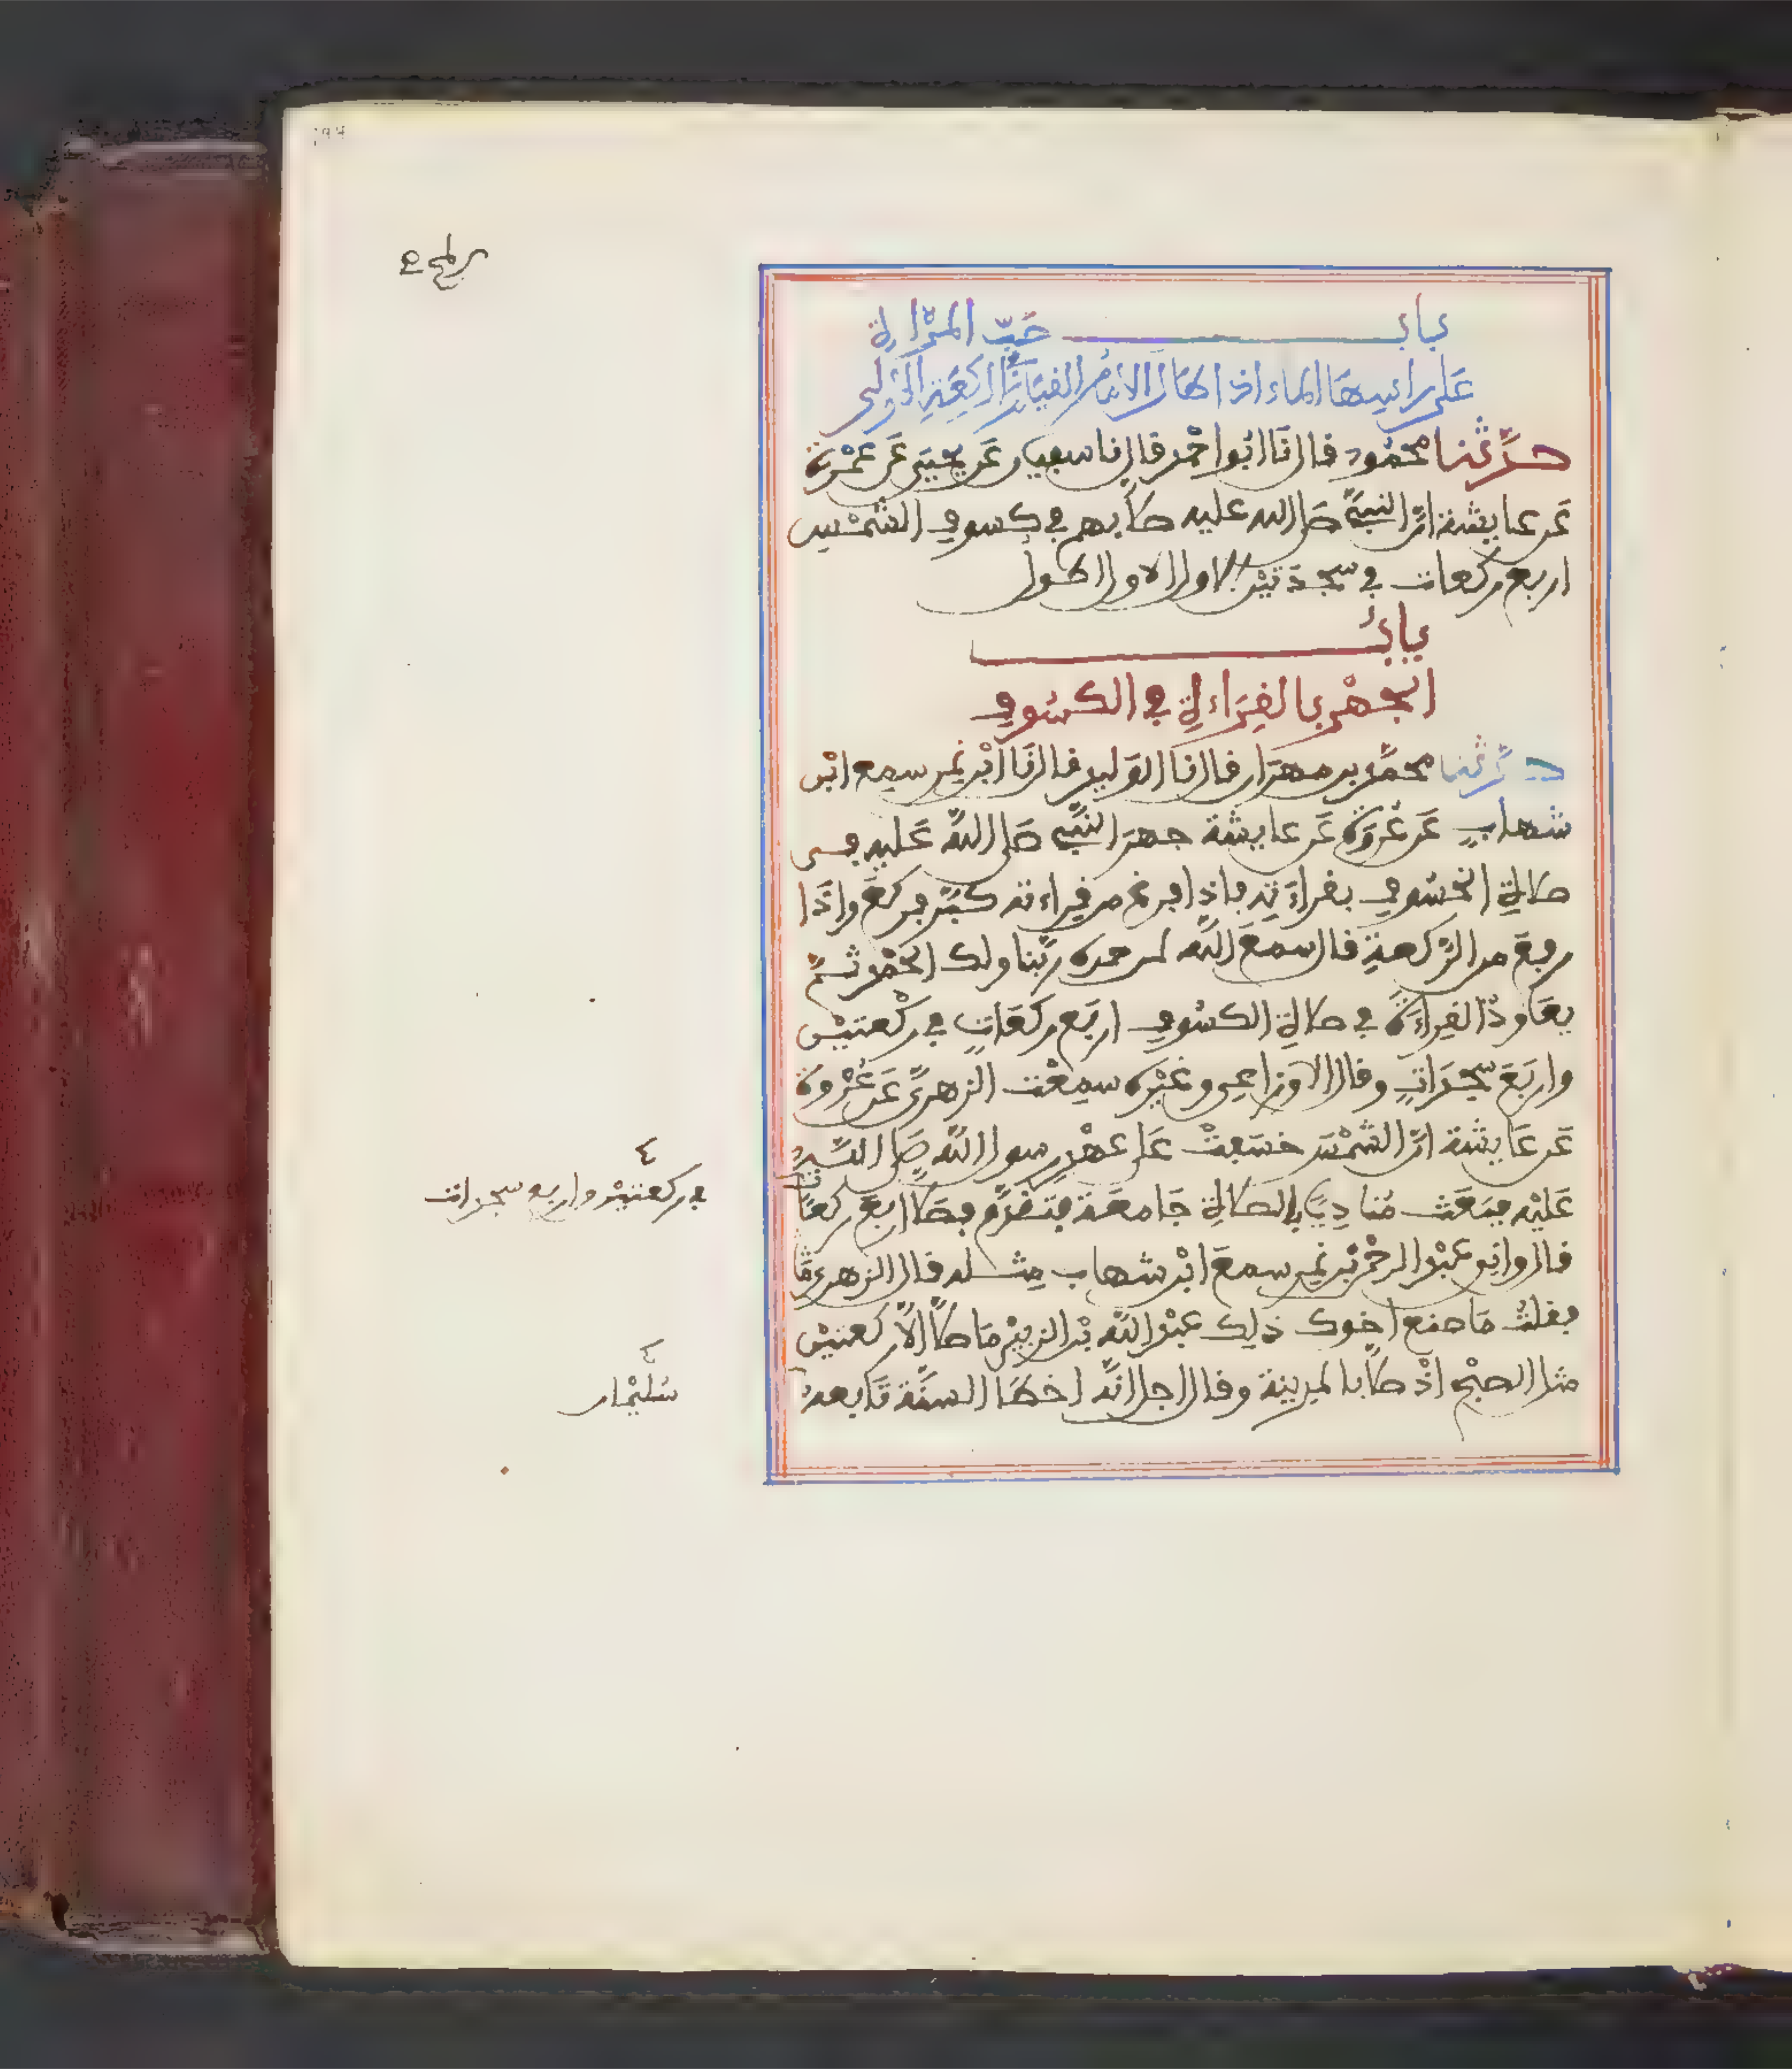 باب صب المرأة
على رأسها الماء اذا اطال الامام القيام في الركعة الأولى
حدثنا محمود قال نا ابو احمد قال نا سفيان عن يحيى عن عمرة
عن عايشة ان النبي صلى الله عليه صلى بهم في كسوف الشمس
اربع ركعات في سجدتين الاولى الاول اطول
باب
الجهر بالقراءة في الكسوف
حدثنا محمد بن مهران قال نا الوليد قال نا ابن نمر سمع ابن
شهاب عن عروة عن عايشة جهر النبي صلى الله عليه في
صلاة الخسوف بقراءته فاذا فرغ من قراءته كبر فركع واذا
رفع من الركعة قال سمع الله لمن حمده ربنا ولك الحمد ثم
يعاود القراءة في صلاة الكسوف اربع ركعات في ركعتين
واربع سجدات وقال الاوزاعي وغيره سمعت الزهري عن عروة
عن عايشة ان الشمس خسفت على عهد رسول الله صلى الله
عليه فبعث مناديا بالصلاة جامعة فتقدم فصلى اربع ركعات
في ركعتين واربع سجدات
قال وانبو عبد الرحمن بن نمر سمع ابن شهاب مثله قال الزهري
فقلت ما صنع اخوك ذلك عبد الله بن الزبير ما صلى الا ركعتين
مثل الصبح اذ صلى بالمدينة وقال اجل انه اخطا السنة تابعه
سليمان